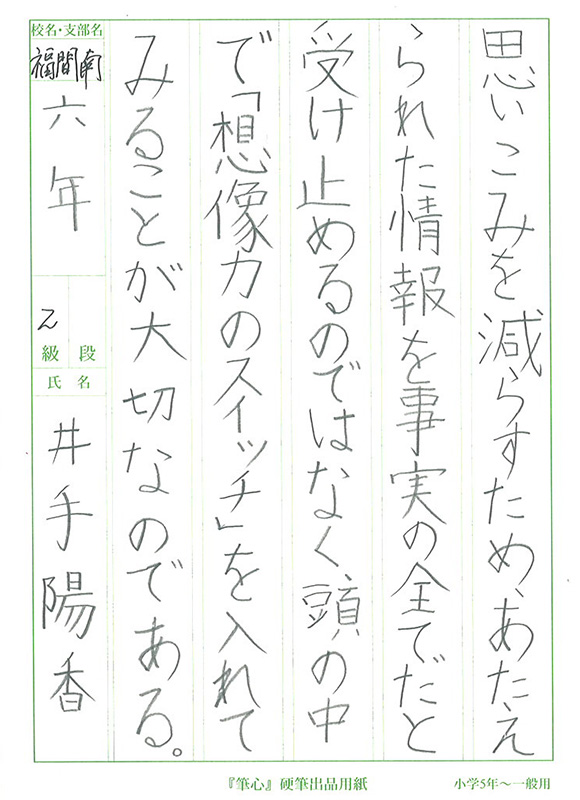 思いこみを減らすため、あたえ
られた情報を事実の全てだと
受け止めるのではなく、頭の中
で「想像力のスイッチ」を入れて
みることが大切なのである。
校名・支部名
福間南
六年
級 段
氏名
井手陽香
『筆心』硬筆出品用紙
小学5年〜一般用